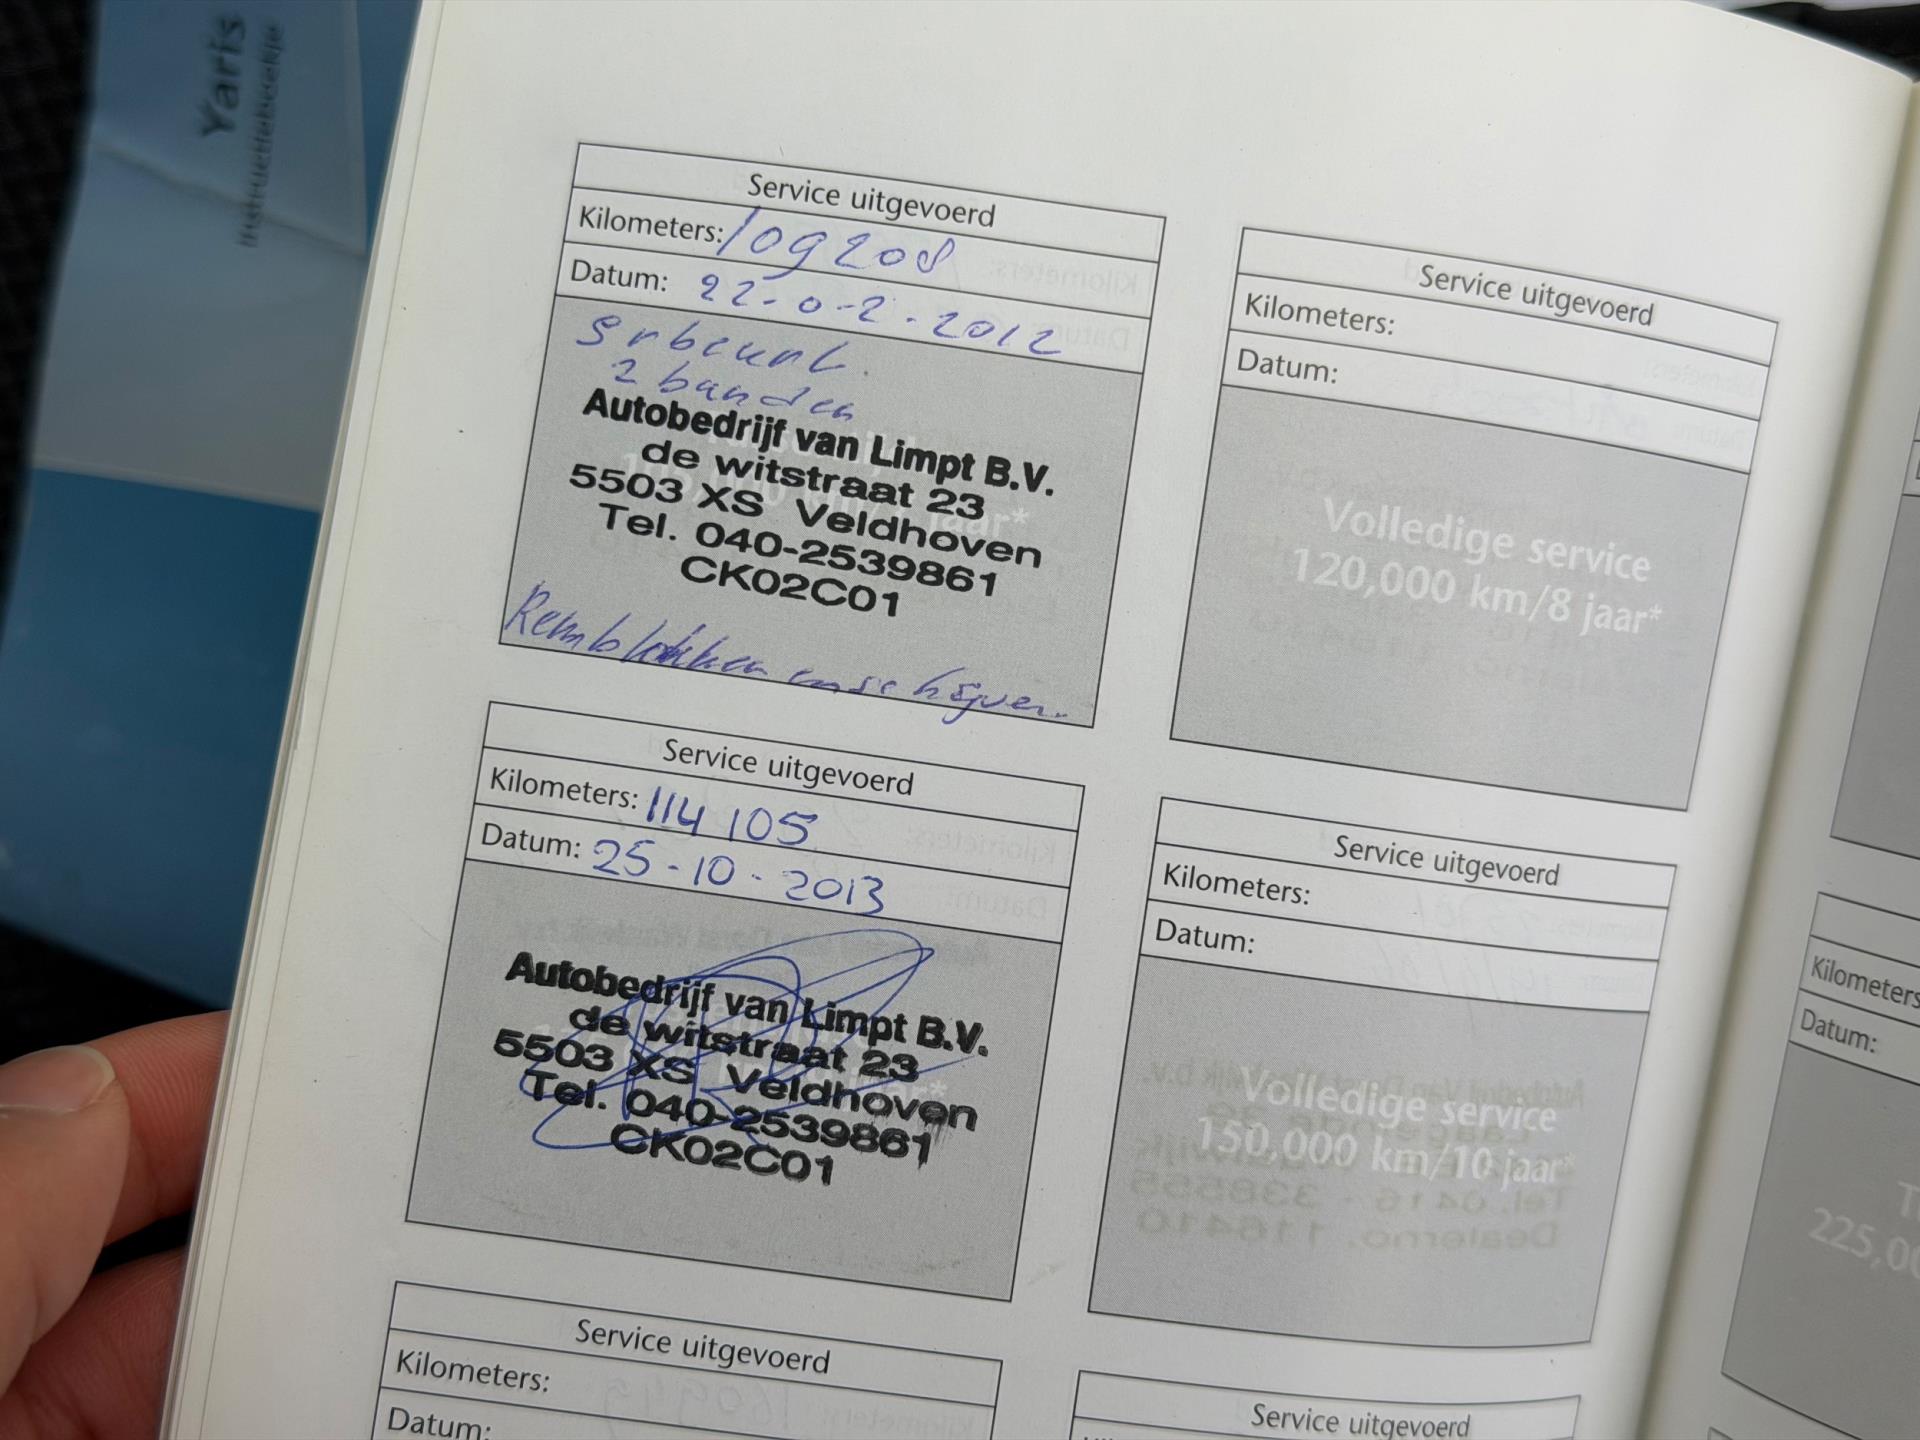 Yaris
Instructieboekje
Service uitgevoerd
Kilometers: 109208
Datum: 22-0-2-2012
grbeurt.
2 banden
Autobedrijf van Limpt B.V.
de witstraat 23
5503 XS Veldhoven
Tel. 040-2539861
CK02C01
Remblokken en schijven.
Service uitgevoerd
Kilometers:
Datum:
Volledige service
120,000 km/8 jaar*
Service uitgevoerd
Kilometers: 114105
Datum: 25-10-2013
Autobedrijf van Limpt B.V.
de witstraat 23
5503 XS Veldhoven
Tel. 040-2539861
CK02C01
Service uitgevoerd
Kilometers:
Datum:
Volledige service
150,000 km/10 jaar*
Service uitgevoerd
Kilometers:
Datum:
Service uitgevoerd
Kilometers
Datum:
225,00